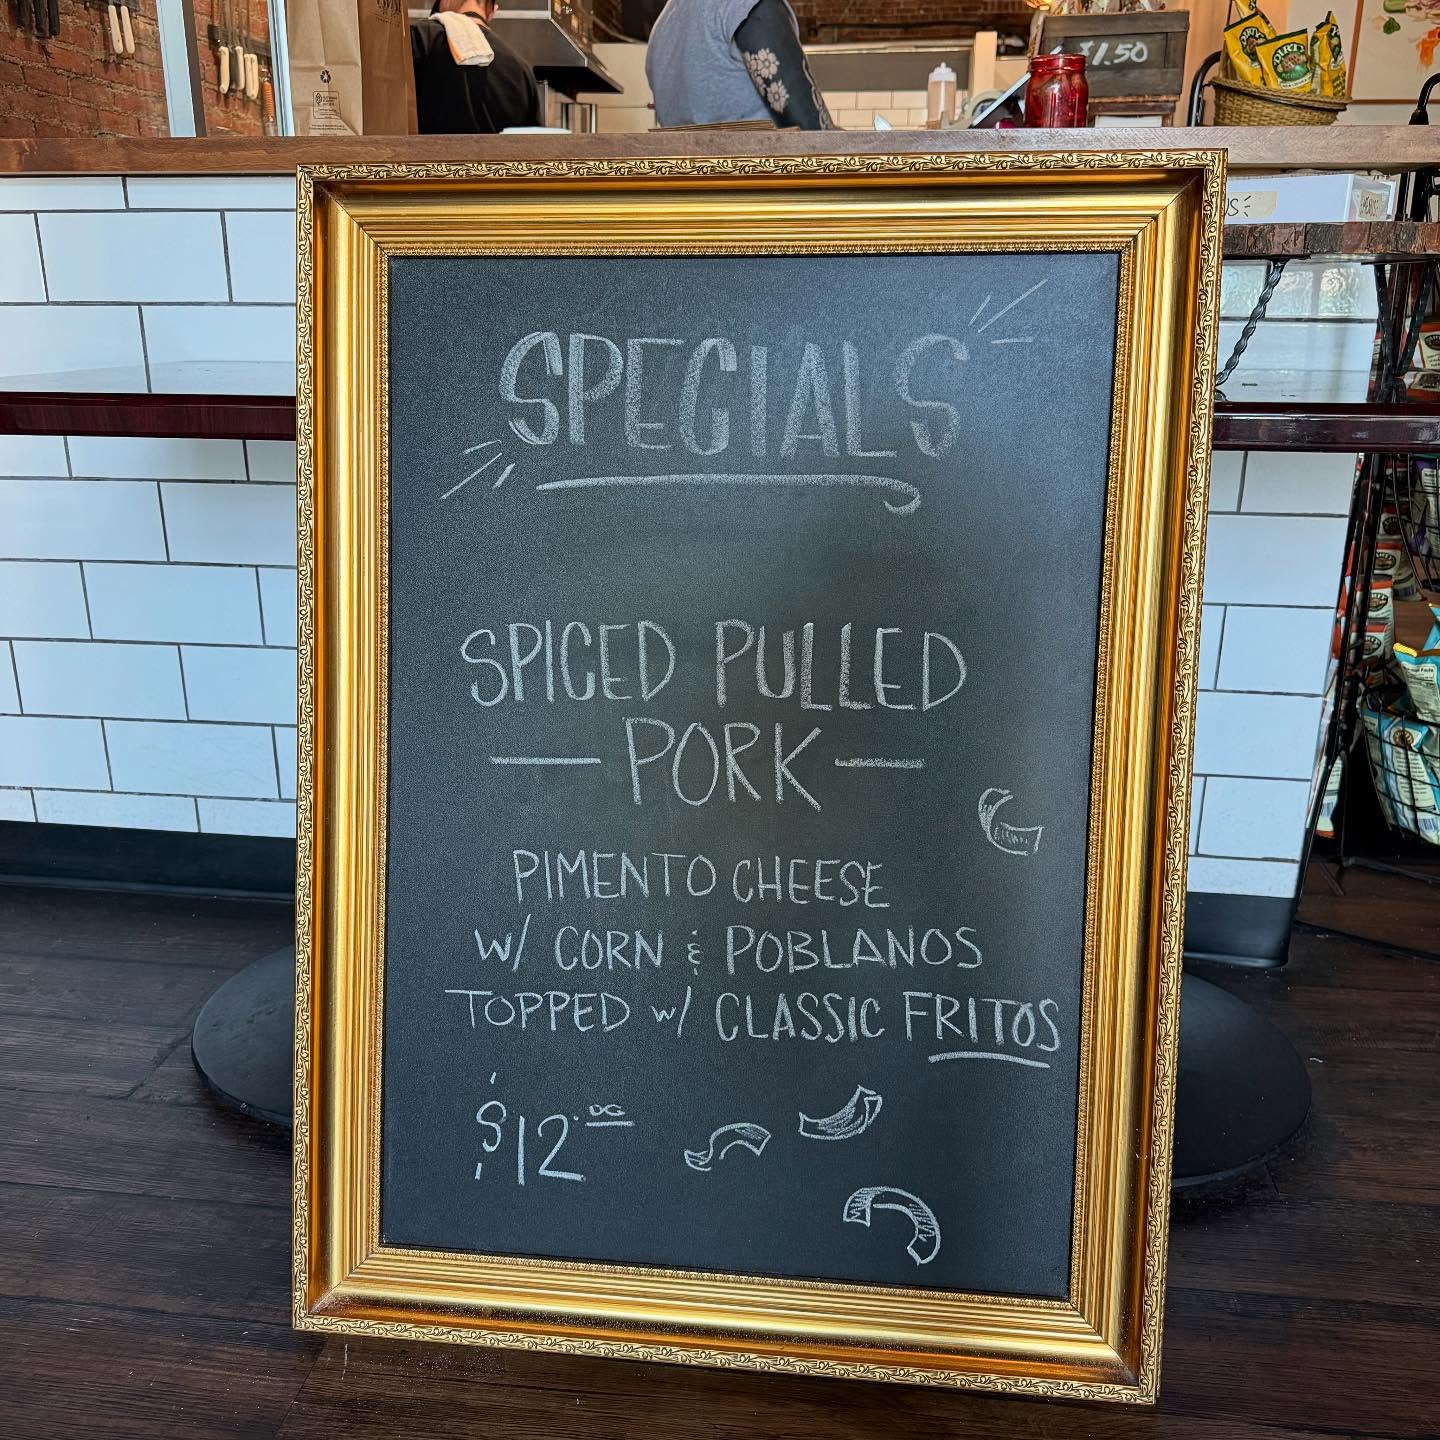 $1.50
DIRTY
SPECIALS
SPICED PULLED
— PORK —
PIMENTO CHEESE
W/ CORN & POBLANOS
TOPPED W/ CLASSIC FRITOS
$12.00